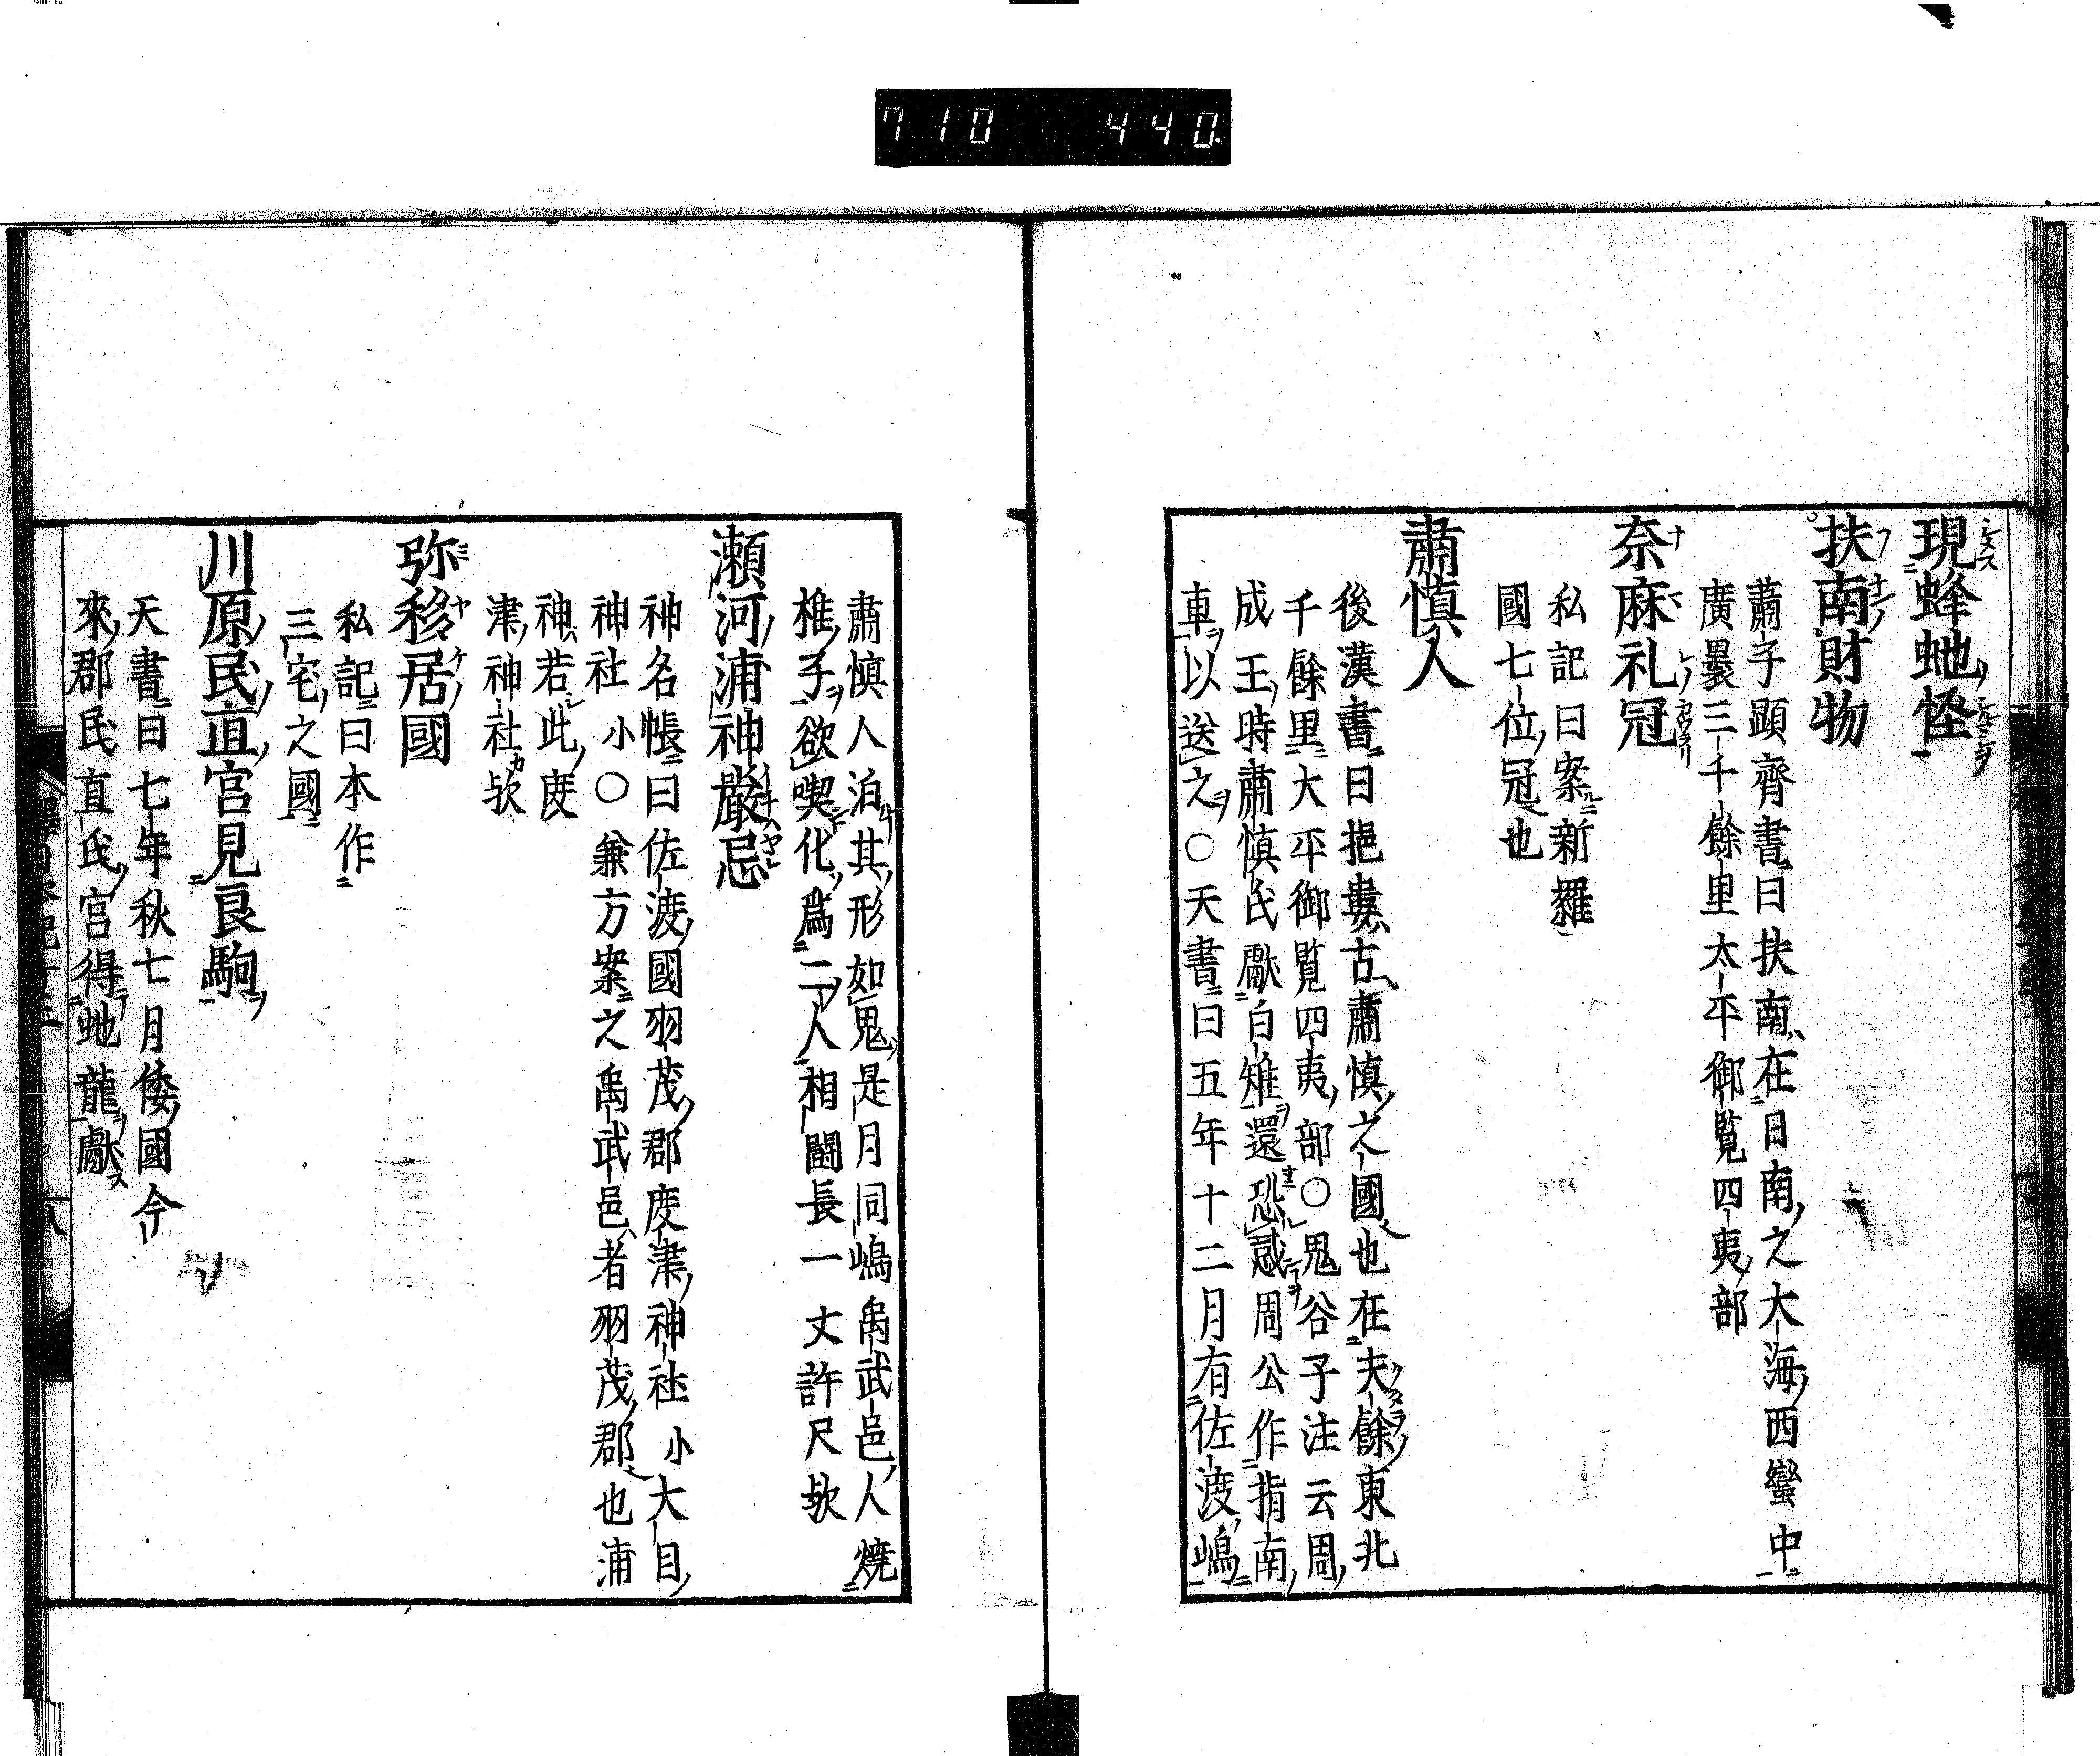 710 440.
現蜂虵怪
扶南財物
蕭子顕齊書曰扶南在日南之大海西蠻中
廣曩三千餘里太平御覧四夷部
奈麻礼冠
私記曰案新羅
國七位冠也
肅慎人
後漢書曰挹婁古肅慎之國也在夫餘東北
千餘里大平御覧四夷部○鬼谷子注云周
成王時肅慎氏獻白雉還恐惑周公作指南
車以送之○天書曰五年十二月有佐渡嶋
肅慎人泊其形如鬼是月同嶋禹武邑人燒
椎子欲喫化為二人相闘長一丈許尺欤
瀬河浦神嚴忌
神名帳曰佐渡國羽茂郡度津神社小大目
神社小○兼方案之禹武邑者羽茂郡也浦
神若此度
津神社欤
弥移居國
私記曰本作
三宅之國
川原民直宮見良駒
天書曰七年秋七月倭國今
來郡民直氏宮得虵龍獻
八